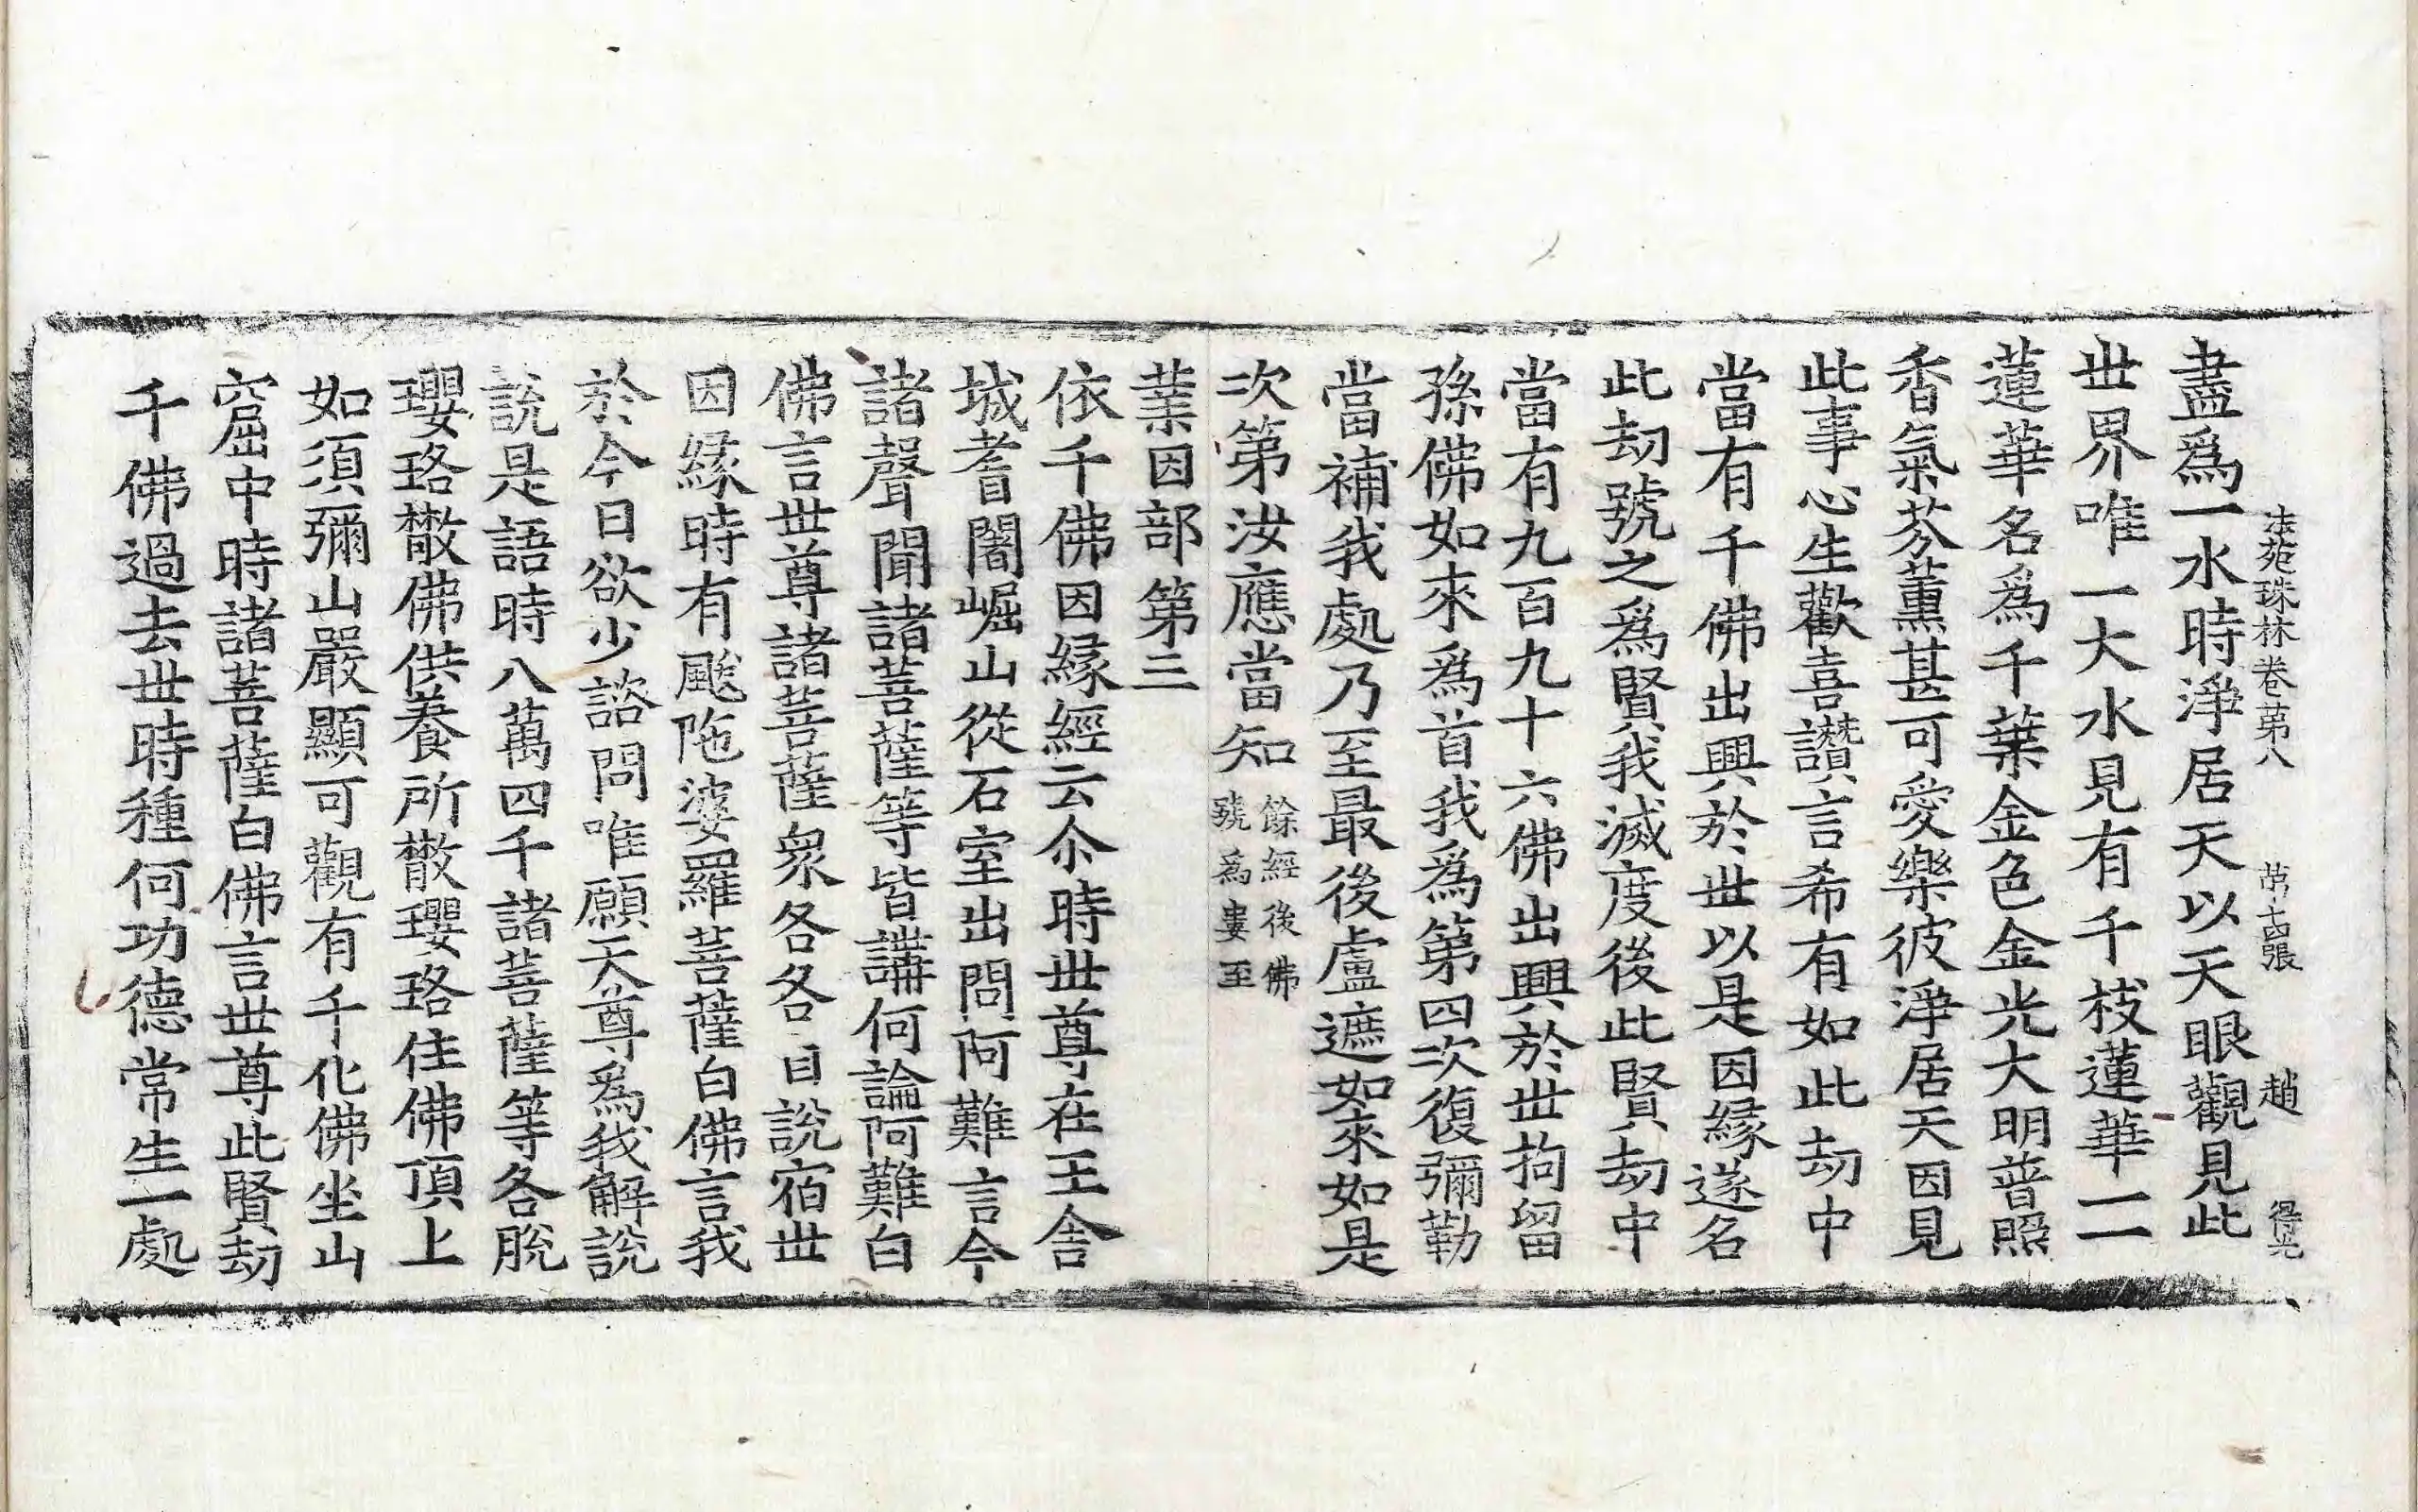 法苑珠林卷第八 第十四張 趙 得光
盡爲一水時淨居天以天眼觀見此
世界唯一大水見有千枝蓮華一一
蓮華名爲千葉金色金光大明普照
香氣芬薰甚可愛樂彼淨居天因見
此事心生歡喜讚言希有如此劫中
當有千佛出興於世以是因緣遂名
此劫號之爲賢我滅度後此賢劫中
當有九百九十六佛出興於世拘留
孫佛如來爲首我爲第四次復彌勒
當補我處乃至最後盧遮如來如是
次第汝應當知 餘經後佛號爲婁至
業因部第三
依千佛因緣經云尒時世尊在王舍
城耆闍崛山從石室出問阿難言今
諸聲聞諸菩薩等皆講何論阿難白
佛言世尊諸菩薩衆各各自說宿世
因緣時有颰陁婆羅菩薩白佛言我
於今日欲少諮問唯願天尊爲我解說
說是語時八萬四千諸菩薩等各脫
瓔珞散佛供養所散瓔珞住佛頂上
如須彌山嚴顯可觀有千化佛坐山
窟中時諸菩薩白佛言世尊此賢劫
千佛過去世時種何功德常生一處